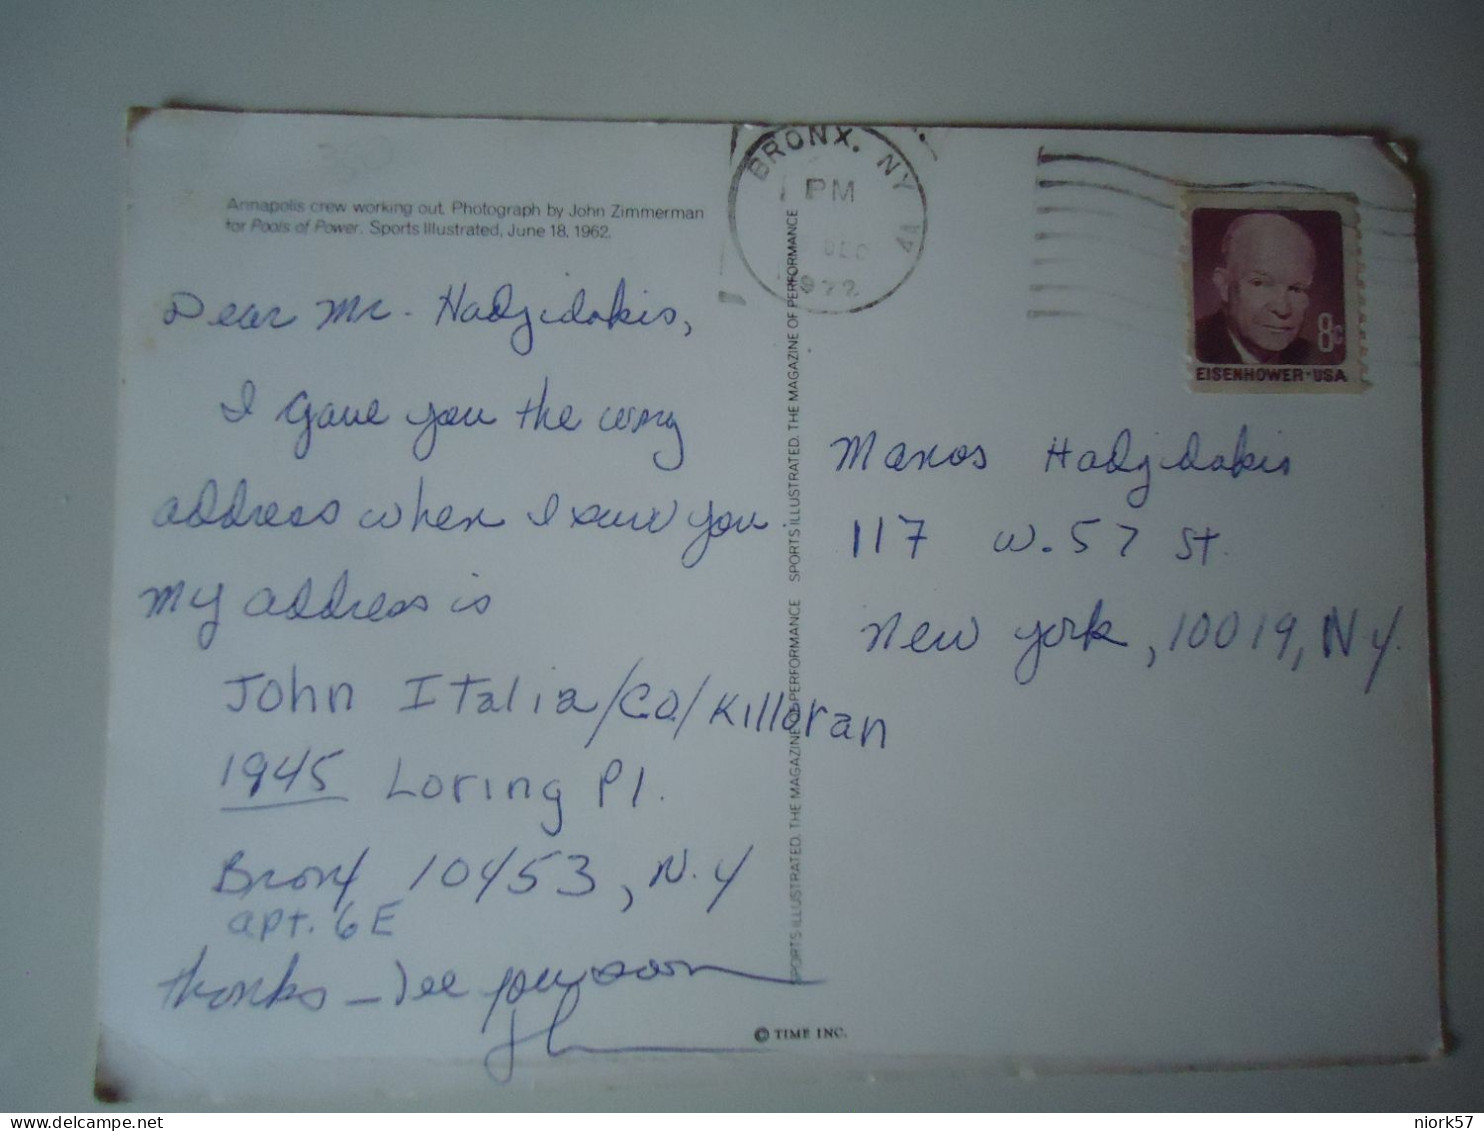 Annapolis crew working out. Photograph by John Zimmerman
for Pools of Power. Sports Illustrated, June 18, 1962.
BRONX, NY
PM
DEC
1972
EISENHOWER·USA
8c
Dear Mr. Hadjidakis,
I gave you the wrong
address when I saw you.
My address is
John Italia/CO/Killoran
1945 Loring Pl.
Bronx 10453, N.Y
apt. 6E
thanks – see you soon
John
Manos Hadjidakis
117 W. 57 St.
New York, 10019, N.Y.
SPORTS ILLUSTRATED. THE MAGAZINE OF PERFORMANCE SPORTS ILLUSTRATED. THE MAGAZINE OF PERFORMANCE
© TIME INC.
niork57